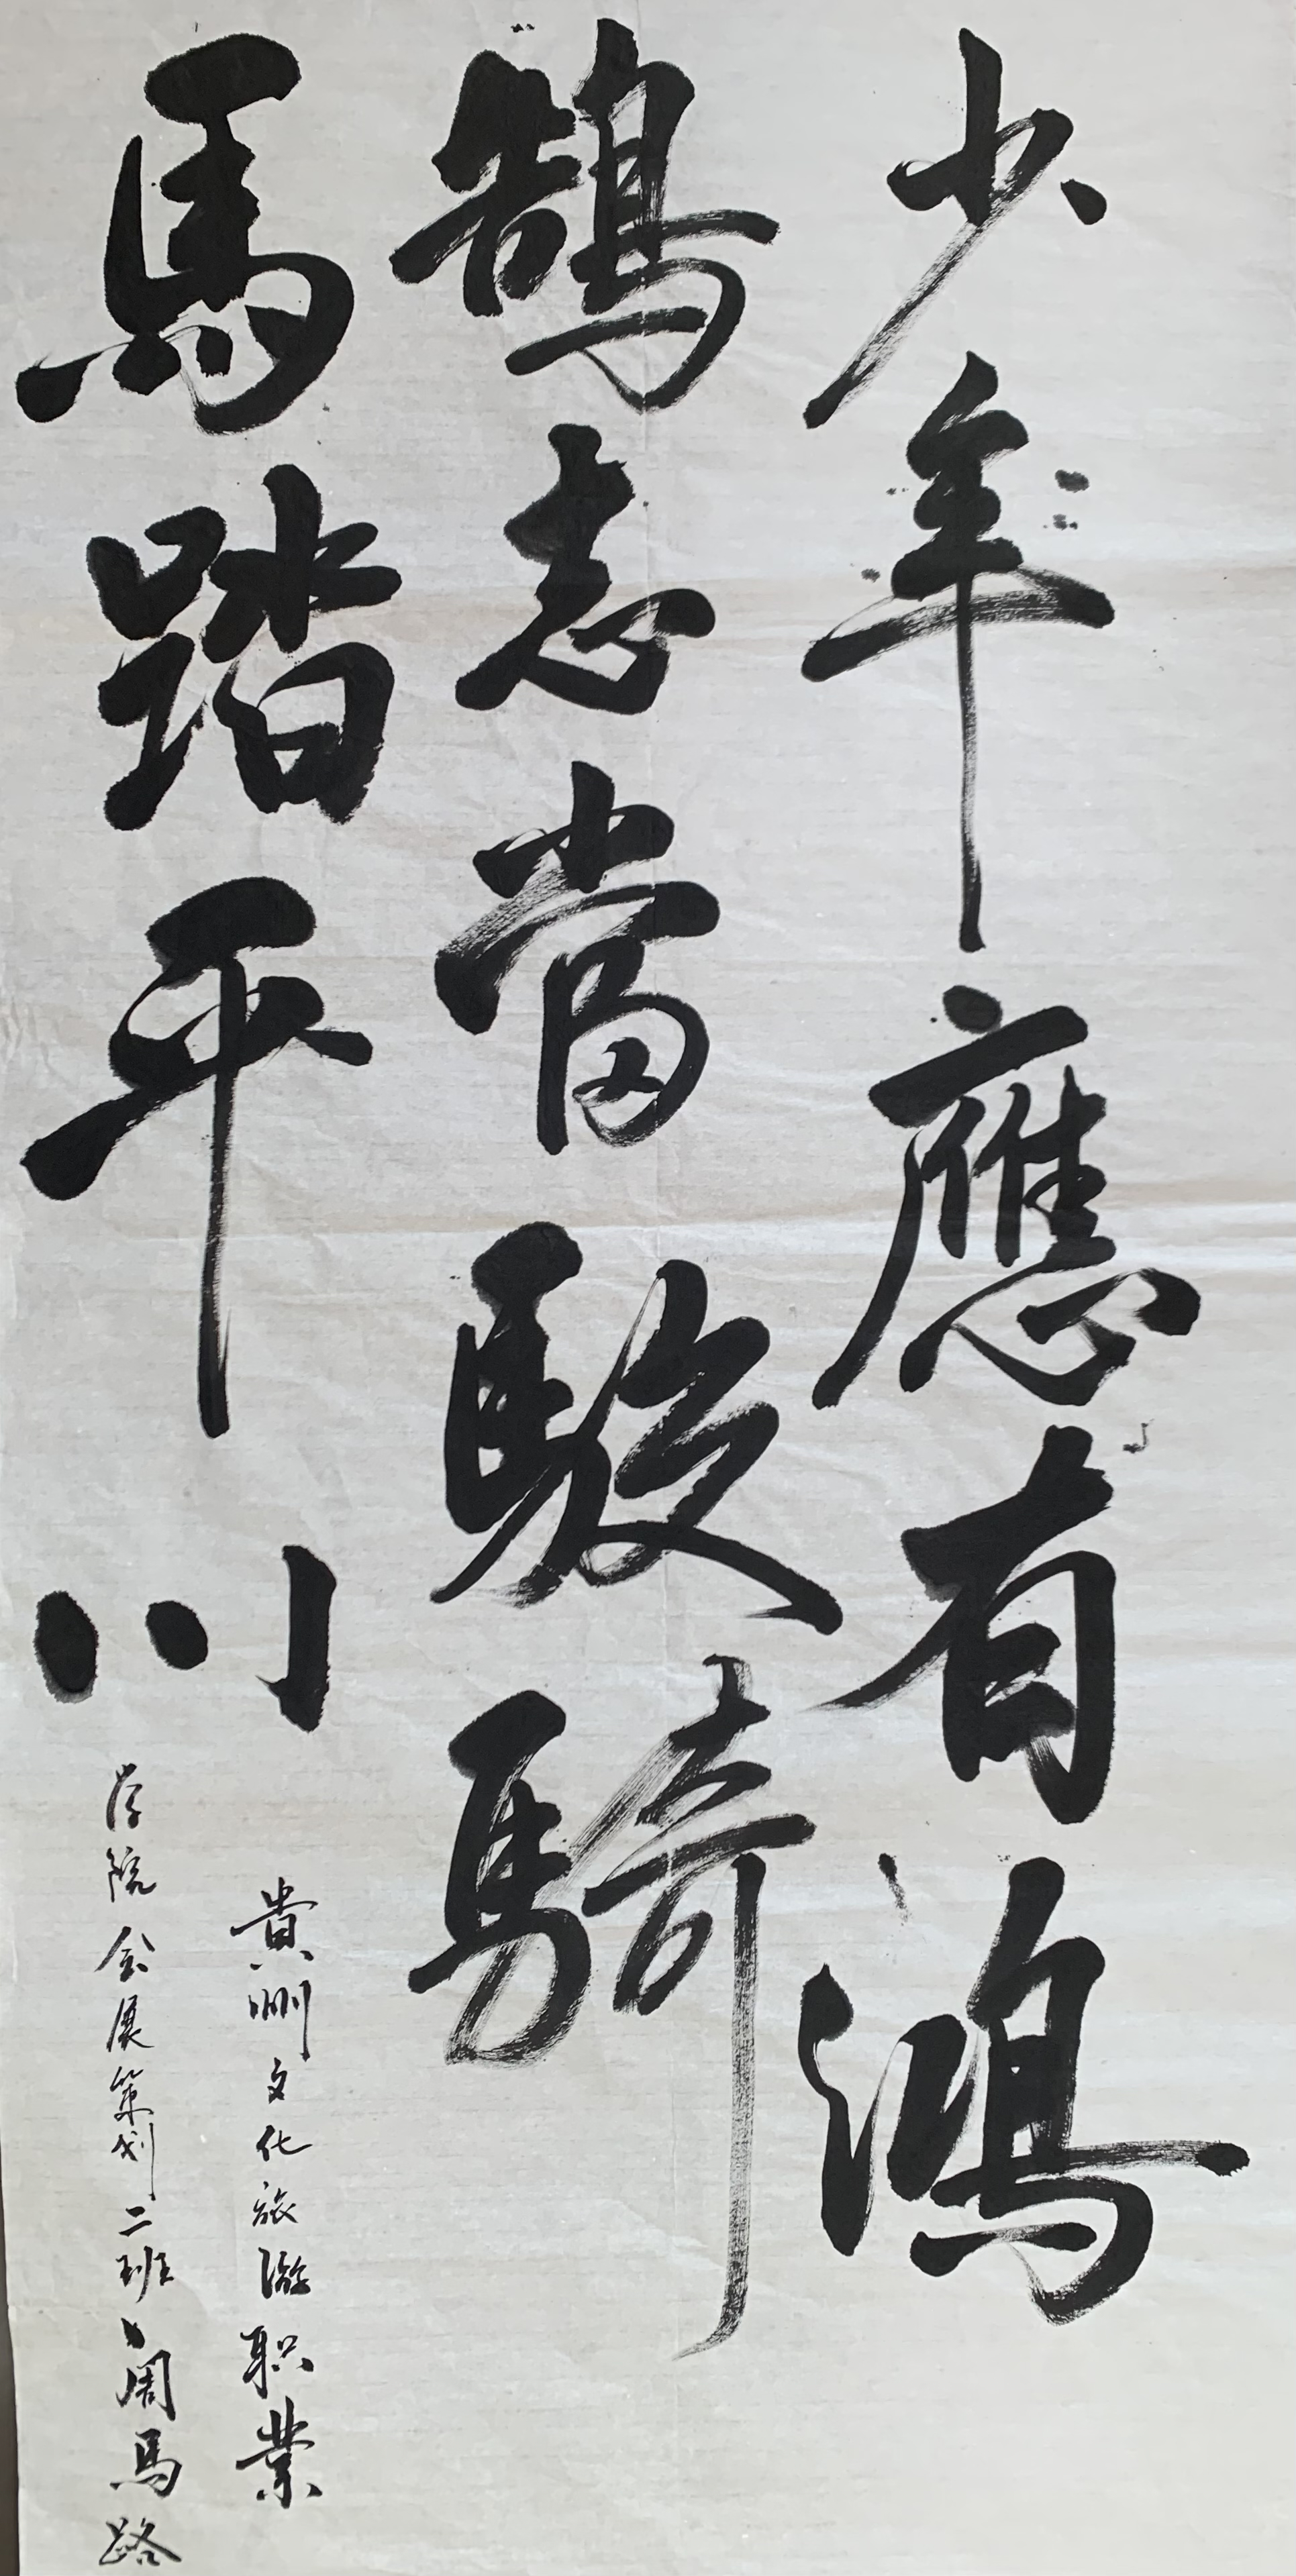 少年應有鴻
鵠志當駿騎
馬踏平川
貴州文化旅游职業
学院会展策划二班周馬路